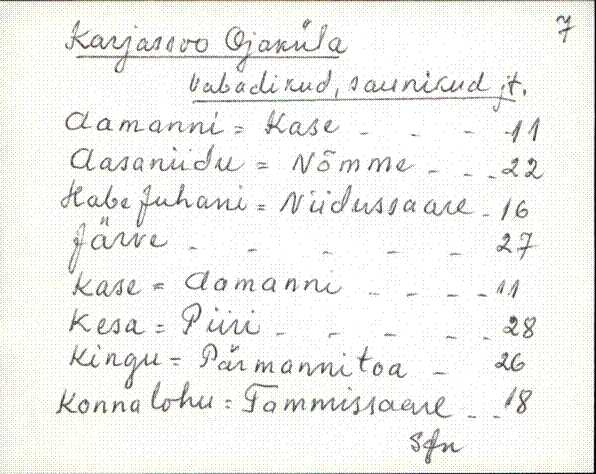 7
Karjasoo Ojaküla
Vabadikud, saunikud jt.
Aamanni = Kase - - - 11
Aasaniidu = Nõmme - - - 22
Habe Juhani = Niidussaare - 16
Järve - - - - - 27
Kase = Aamanni - - - - 11
Kesa = Piiri - - - - - 28
Kingu = Pärmannitoa - 26
Konnalohu = Tammissaare - - 18